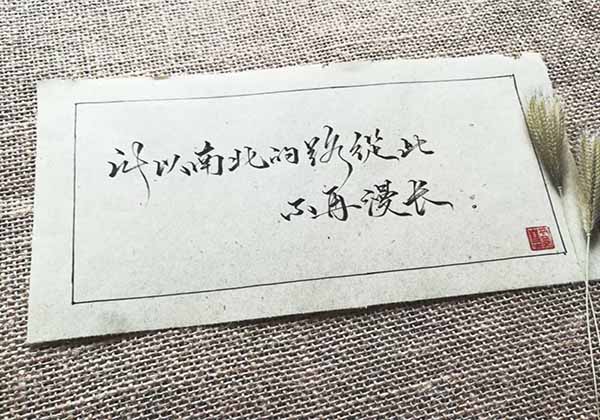 计以南北的路從此
不再漫长.